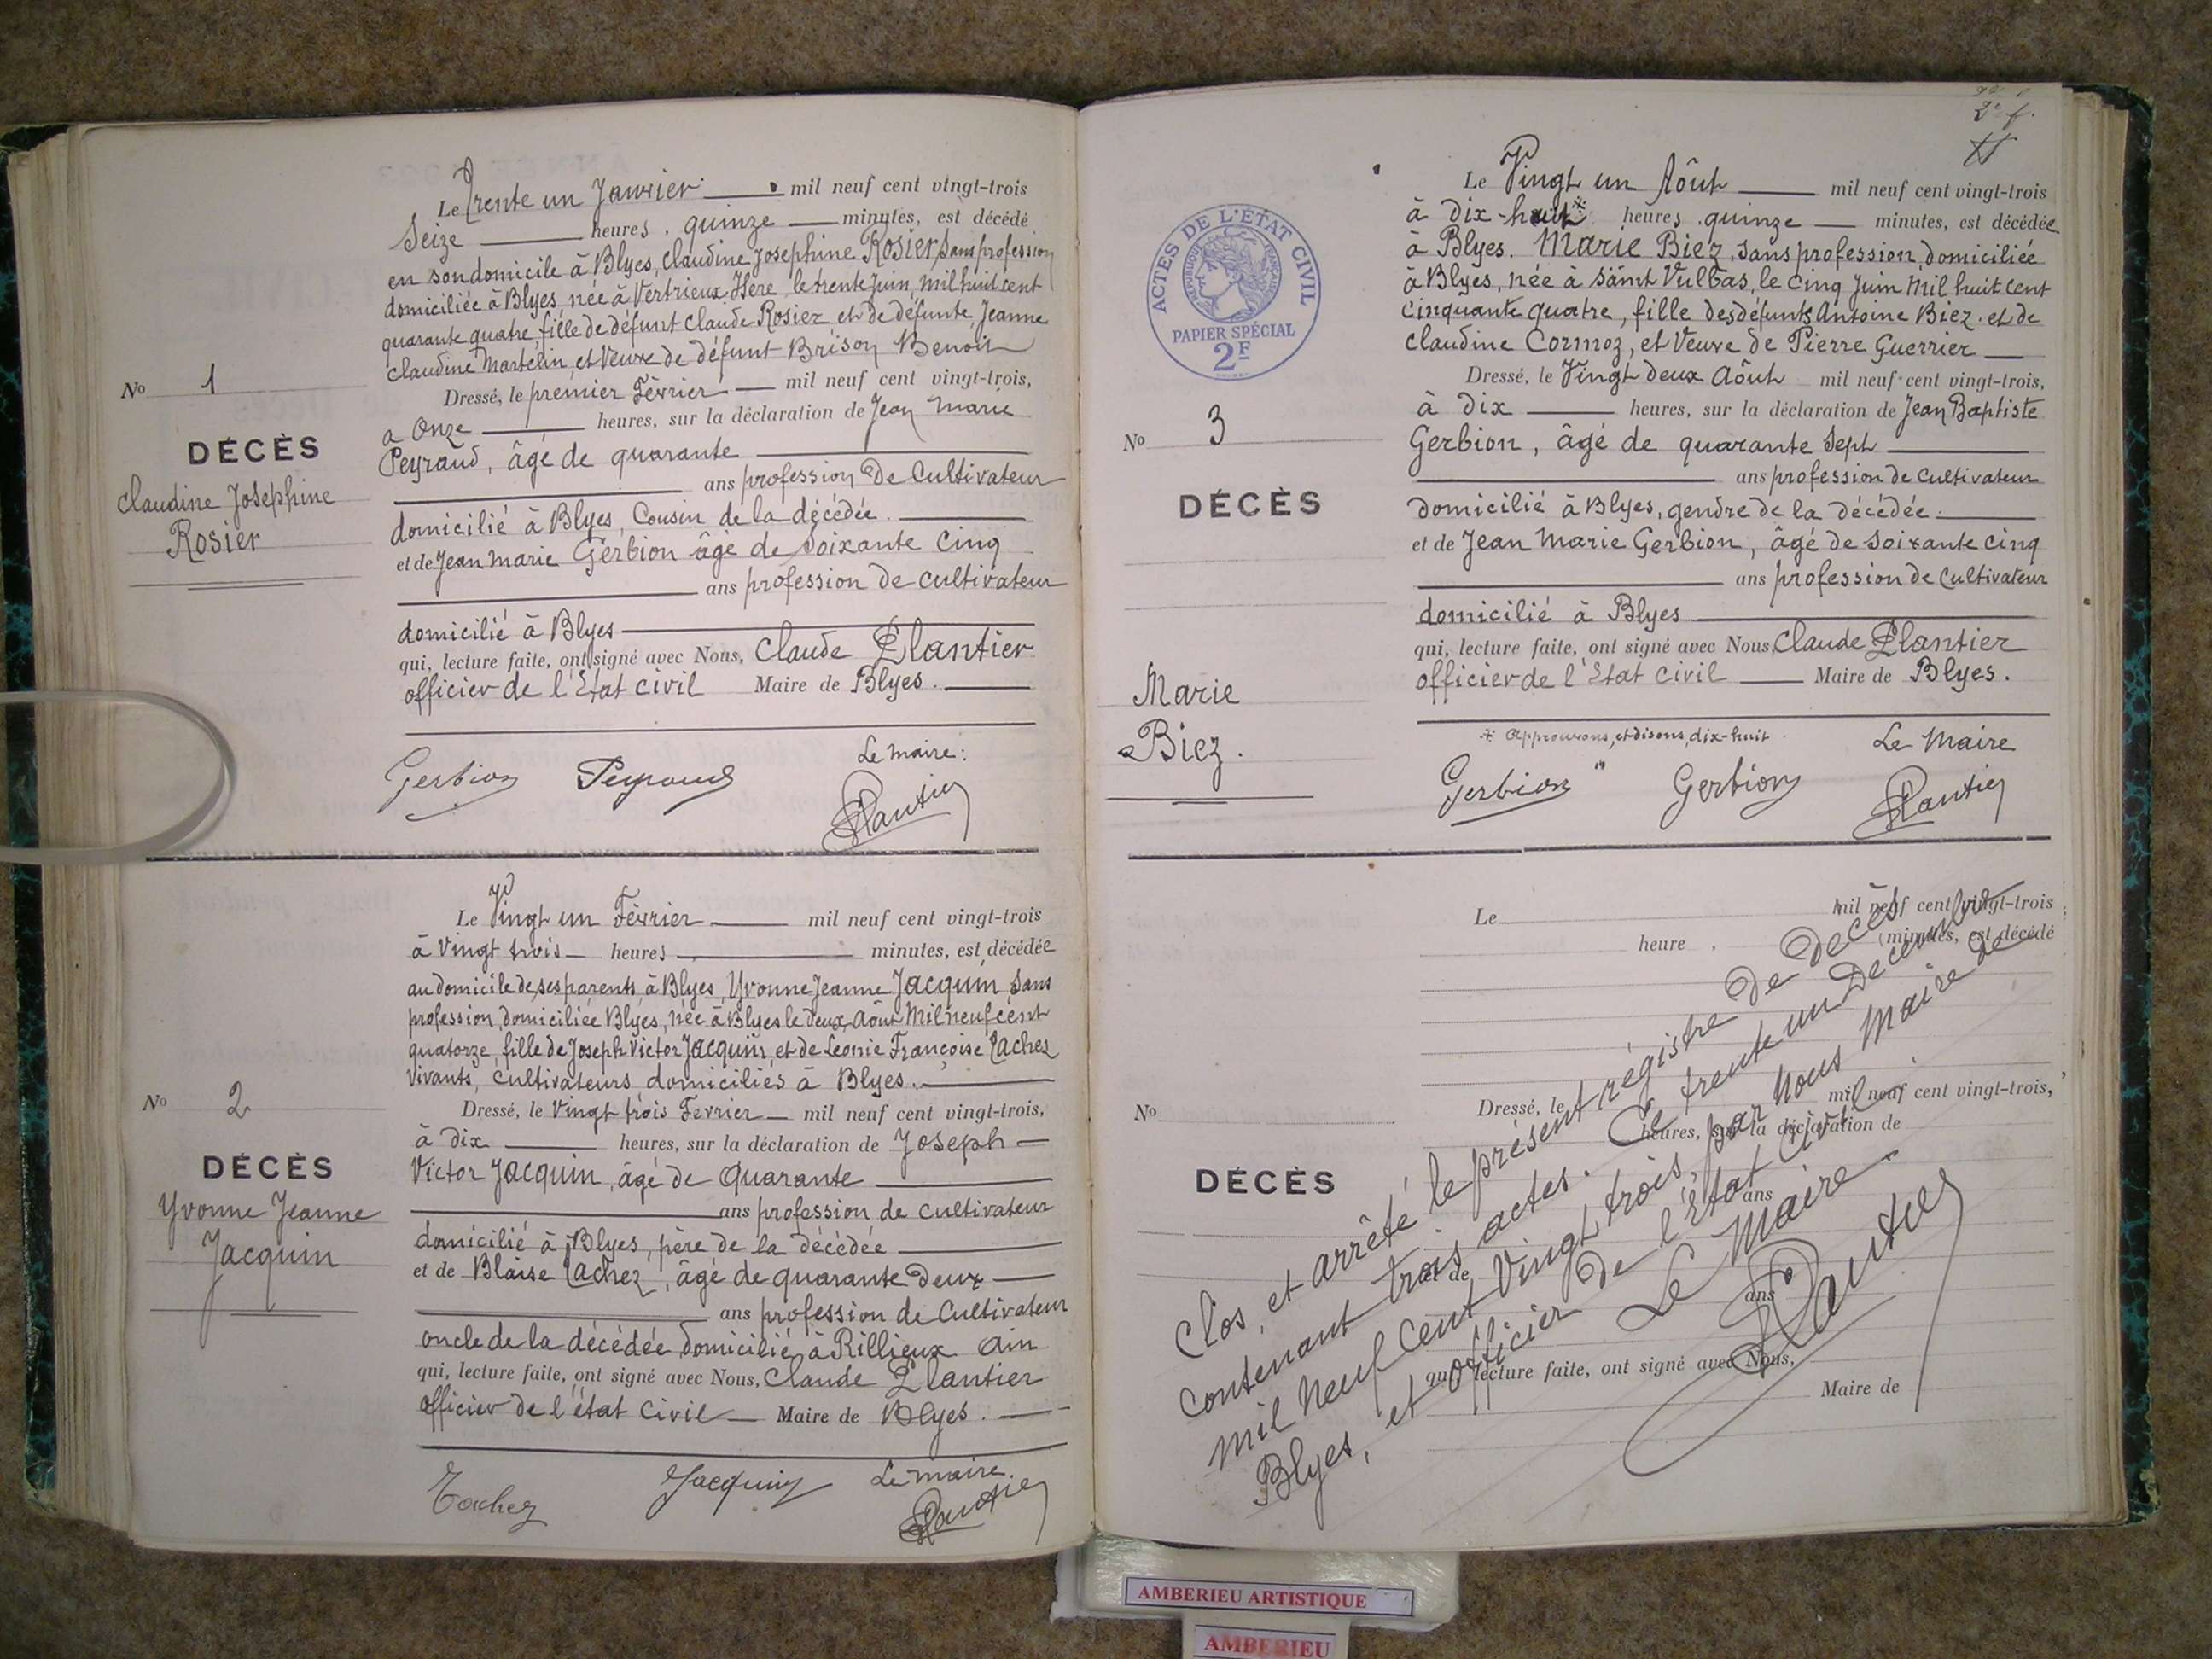 Le Trente un Janvier mil neuf cent vingt-trois
Seize heures. quinze minutes, est décédé
en son domicile à Blyes, Claudine Josephine Rosier, Sans profession
domiciliée à Blyes, née à Vertrieux, Isère, le trente Juin, Mil huit cent
quarante quatre, fille de défunt Claude Rosier et de défunte, Jeanne
Claudine Martelin, et Veuve de défunt Brison Benoit
Dressé, le premier Février mil neuf cent vingt-trois,
No 1
a Onze heures, sur la déclaration de Jean Marie
DÉCÈS
Peyraud, âgé de quarante
ans profession De Cultivateur
Claudine Josephine
Rosier
domicilié à Blyes, Cousin de la décédée.
et de Jean Marie Gerbion âgé de Soixante Cinq
ans profession de cultivateur
domicilié à Blyes
qui, lecture faite, ont signé avec Nous, Claude Plantier
officier de l'État civil Maire de Blyes.
Le maire:
Gerbion Peyraud
Plantier
Le Vingt un Février mil neuf cent vingt-trois
à Vingt trois heures minutes, est décédée
au domicile de ses parents, à Blyes, Yvonne Jeanne Jacquin, Sans
profession, domiciliée Blyes, née à Blyes le Deux, Août Mil neuf cent
quatorze, fille de Joseph Victor Jacquin, et de Leonie Françoise Tachez
Vivants, Cultivateurs domiciliés à Blyes.
No 2
Dressé, le Vingt trois Fevrier mil neuf cent vingt-trois,
à dix heures, sur la déclaration de Joseph
DÉCÈS
Victor Jacquin, âgé de Quarante
Yvonne Jeanne
Jacquin
ans profession de cultivateur
domicilié à Blyes, père de la décédée
et de Blaise Tachez, âgé de quarante Deux
ans profession de Cultivateur
oncle de la décédée, domicilié, à Rillieux Ain
qui, lecture faite, ont signé avec Nous, Claude Plantier
officier de l'état Civil Maire de Blyes.
Le maire.
Tachez Jacquin
Plantier
2e f.
ACTES DE L'ÉTAT CIVIL
RÉPUBLIQUE FRANÇAISE
PAPIER SPÉCIAL
2F
Le Vingt un Aôut mil neuf cent vingt-trois
à dix-huit* heures. quinze minutes, est décédée
à Blyes. Marie Biez, sans profession, domiciliée
à Blyes, née à Saint Vulbas, le Cinq Juin Mil huit Cent
Cinquante quatre, fille des défunts Antoine Biez. et de
Claudine Cormoz, et Veuve de Pierre Guerrier
Dressé, le Vingt deux Aôut mil neuf cent vingt-trois,
No 3
à dix heures, sur la déclaration de Jean Baptiste
Gerbion, âgé de quarante Sept
DÉCÈS
ans profession de Cultivateur
domicilié à Blyes, gendre de la décédée.
et de Jean Marie Gerbion, âgé de Soixante Cinq
ans profession de Cultivateur
domicilié à Blyes
qui, lecture faite, ont signé avec Nous, Claude Plantier
officier de l'État Civil Maire de Blyes.
Marie
Biez.
* Approuvons, et disons, dix-huit
Le Maire
Gerbion Gerbion
Plantier
Le mil neuf cent vingt-trois
heure minutes, est décédé
No
Dressé, le mil neuf cent vingt-trois,
heures, sur la déclaration de
DÉCÈS
ans
et de
ans
qui, lecture faite, ont signé avec Nous,
Maire de
Clos, et arrêté le présent régistre De Decès
contenant trois actes. Ce trente un Decembre
mil neuf Cent Vingt trois, par Nous Maire de
Blyes, et officier De l'État Civil.
Le Maire.
Plantier
AMBERIEU ARTISTIQUE
AMBERIEU